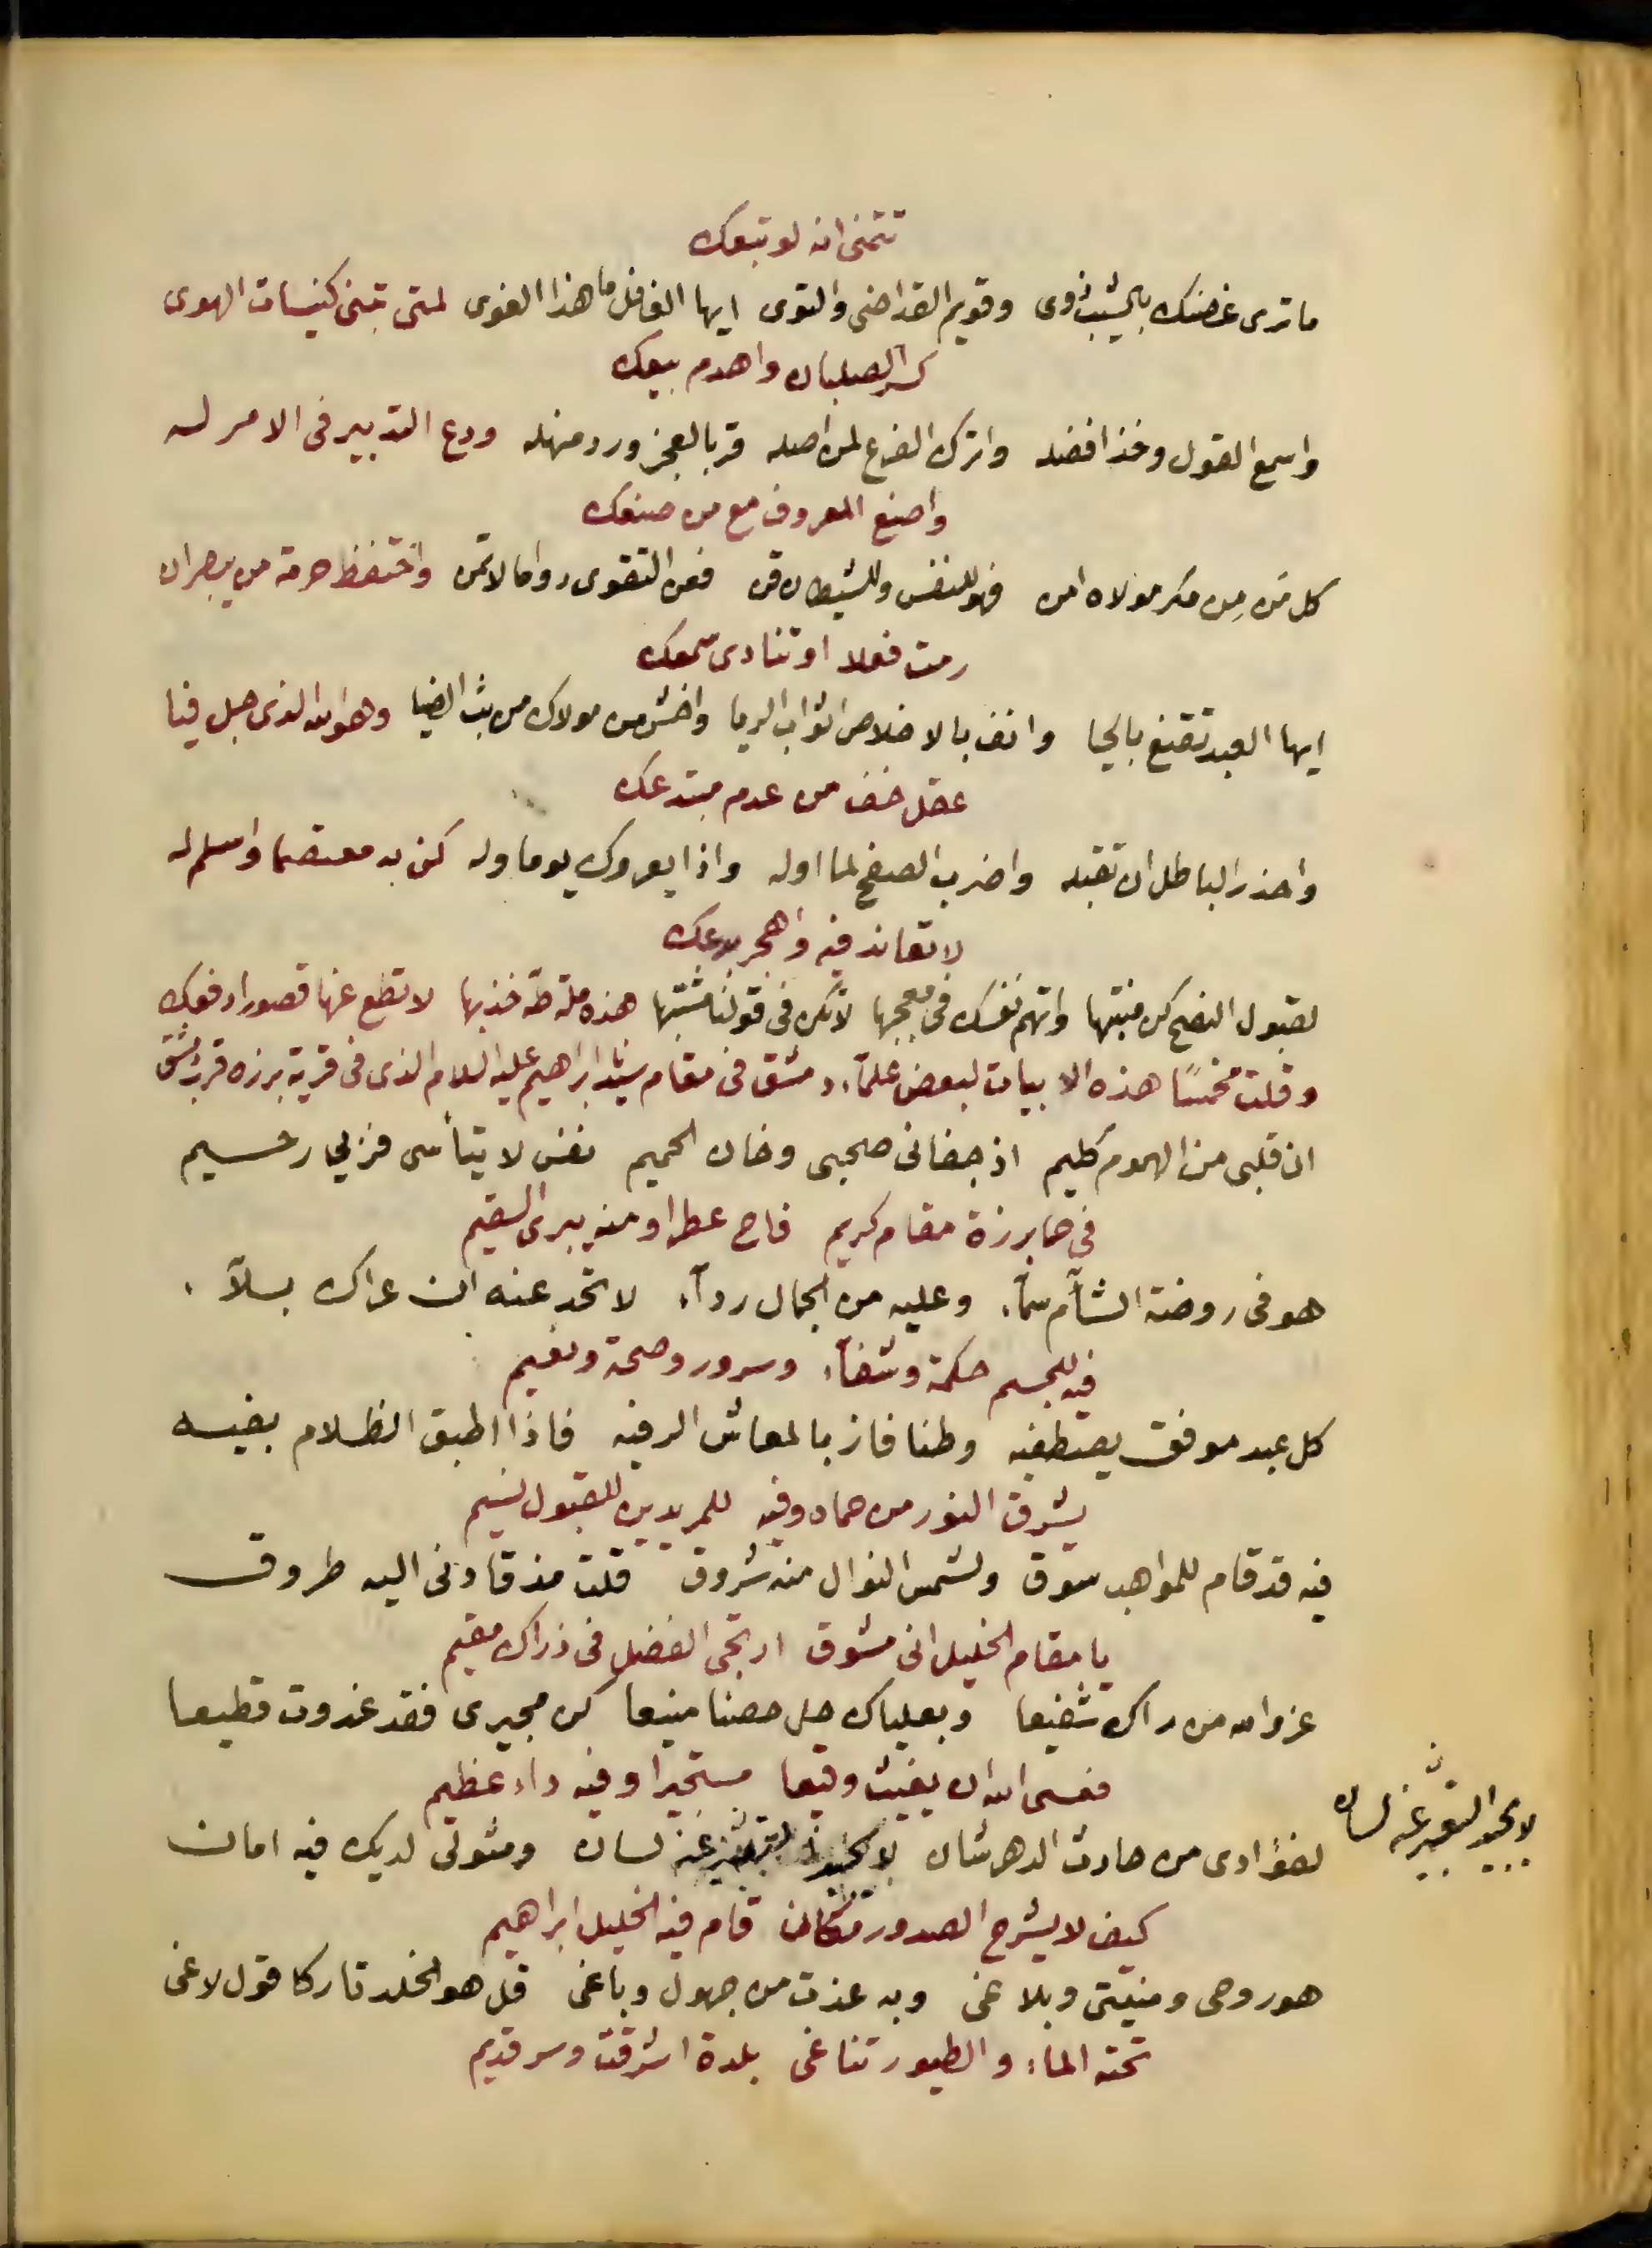 تتمنى انه لو تبعك
ما ترى غصنك بالشيب ذوى وقويم القد احنى والتوى ايها الغافل ما هذا الغوى لمتى تبنى كنيسات الهوى
كسر الصلبان واهدم بيعك
واسمع القول وخذ افضله واترك الفرع لمن اصله قر بالعجز ورد منهله ودع التدبير فى الامر له
واصنع المعروف مع من صنعك
كل من مِن مكر مولاه امن فهو للنفس وللشيطان قن فعن التقوى دواما لا تمن واحتفظ حرمة من يبصر ان
رمت فعلا او تنادى سمعك
ايها العبد تقنع بالحيا وانف بالاخلاص اثواب الريا واخش من مولاك من بث الضيا وهو الله الذى جبل فيا
عقل خف من عدم مبتدعك
واحذر الباطل ان تقبله واضرب الصفح لما اوله واذا يعروك يوما وله كن به معتصما واسلم له
لا تعاند فيه واهجر بدعك
لقبول النصح كن منتبها واتهم نفسك فى معجبها لا تكن فى قولنا مشتبها هذه ملة طه خذ بها لا تطع عنها قصورا دفعك
وقلت مخمسًا هذه الابيات لبعض علمآء دمشق فى مقام سيدنا ابراهيم عليه السلام الذى فى قرية برزه قرب دمشق
ان قلبى من الهموم كليم اذ جفانى صحبى وخان الحميم نفس لا تيأسى فربي رحيم
في حما برزة مقام كريم فاح عطرا ومنه يبرى السقيم
هو فى روضة الشآم سمآء وعليه من الجمال ردآء لا تحد عنه ان عراك بلآء
فيه للجسم حكمة وشفآء وسرور وصحة ونعيم
كل عبد موفق يصطفيه وطنا فاز بالمعاش الرفيه فاذا اطبق الظلام بفيه
يشرق النور من حماه وفيه للمريدين للقبول نسيم
فيه قد قام للمواهب سوق ولشمس النوال منه شروق قلت مذ قادنى اليه طروق
يا مقام الخليل انى مشوق ارتجى الفضل فى ذراك مقيم
عز والله من راك شفيعا وبعلياك حل حصنا منيعا كن مجيرى فقد غدوت قطيعا
فعسى الله ان يغيث وقيعا مستجيرا وفيه داء عظيم
لفؤادى من حادث الدهر شان عنه لسان ومثولى لديك فيه امان
لا يجيد التعبير عنه لسان
كيف لا يشرح الصدور مكان قام فيه الخليل ابراهيم
هو روحى ومنيتى وبلاغى وبه عذت من جهول وباغى قل هو الخلد تاركا قول لاغى
تحته الماء والطيور تناغى بلدة اشرقت وسر قديم